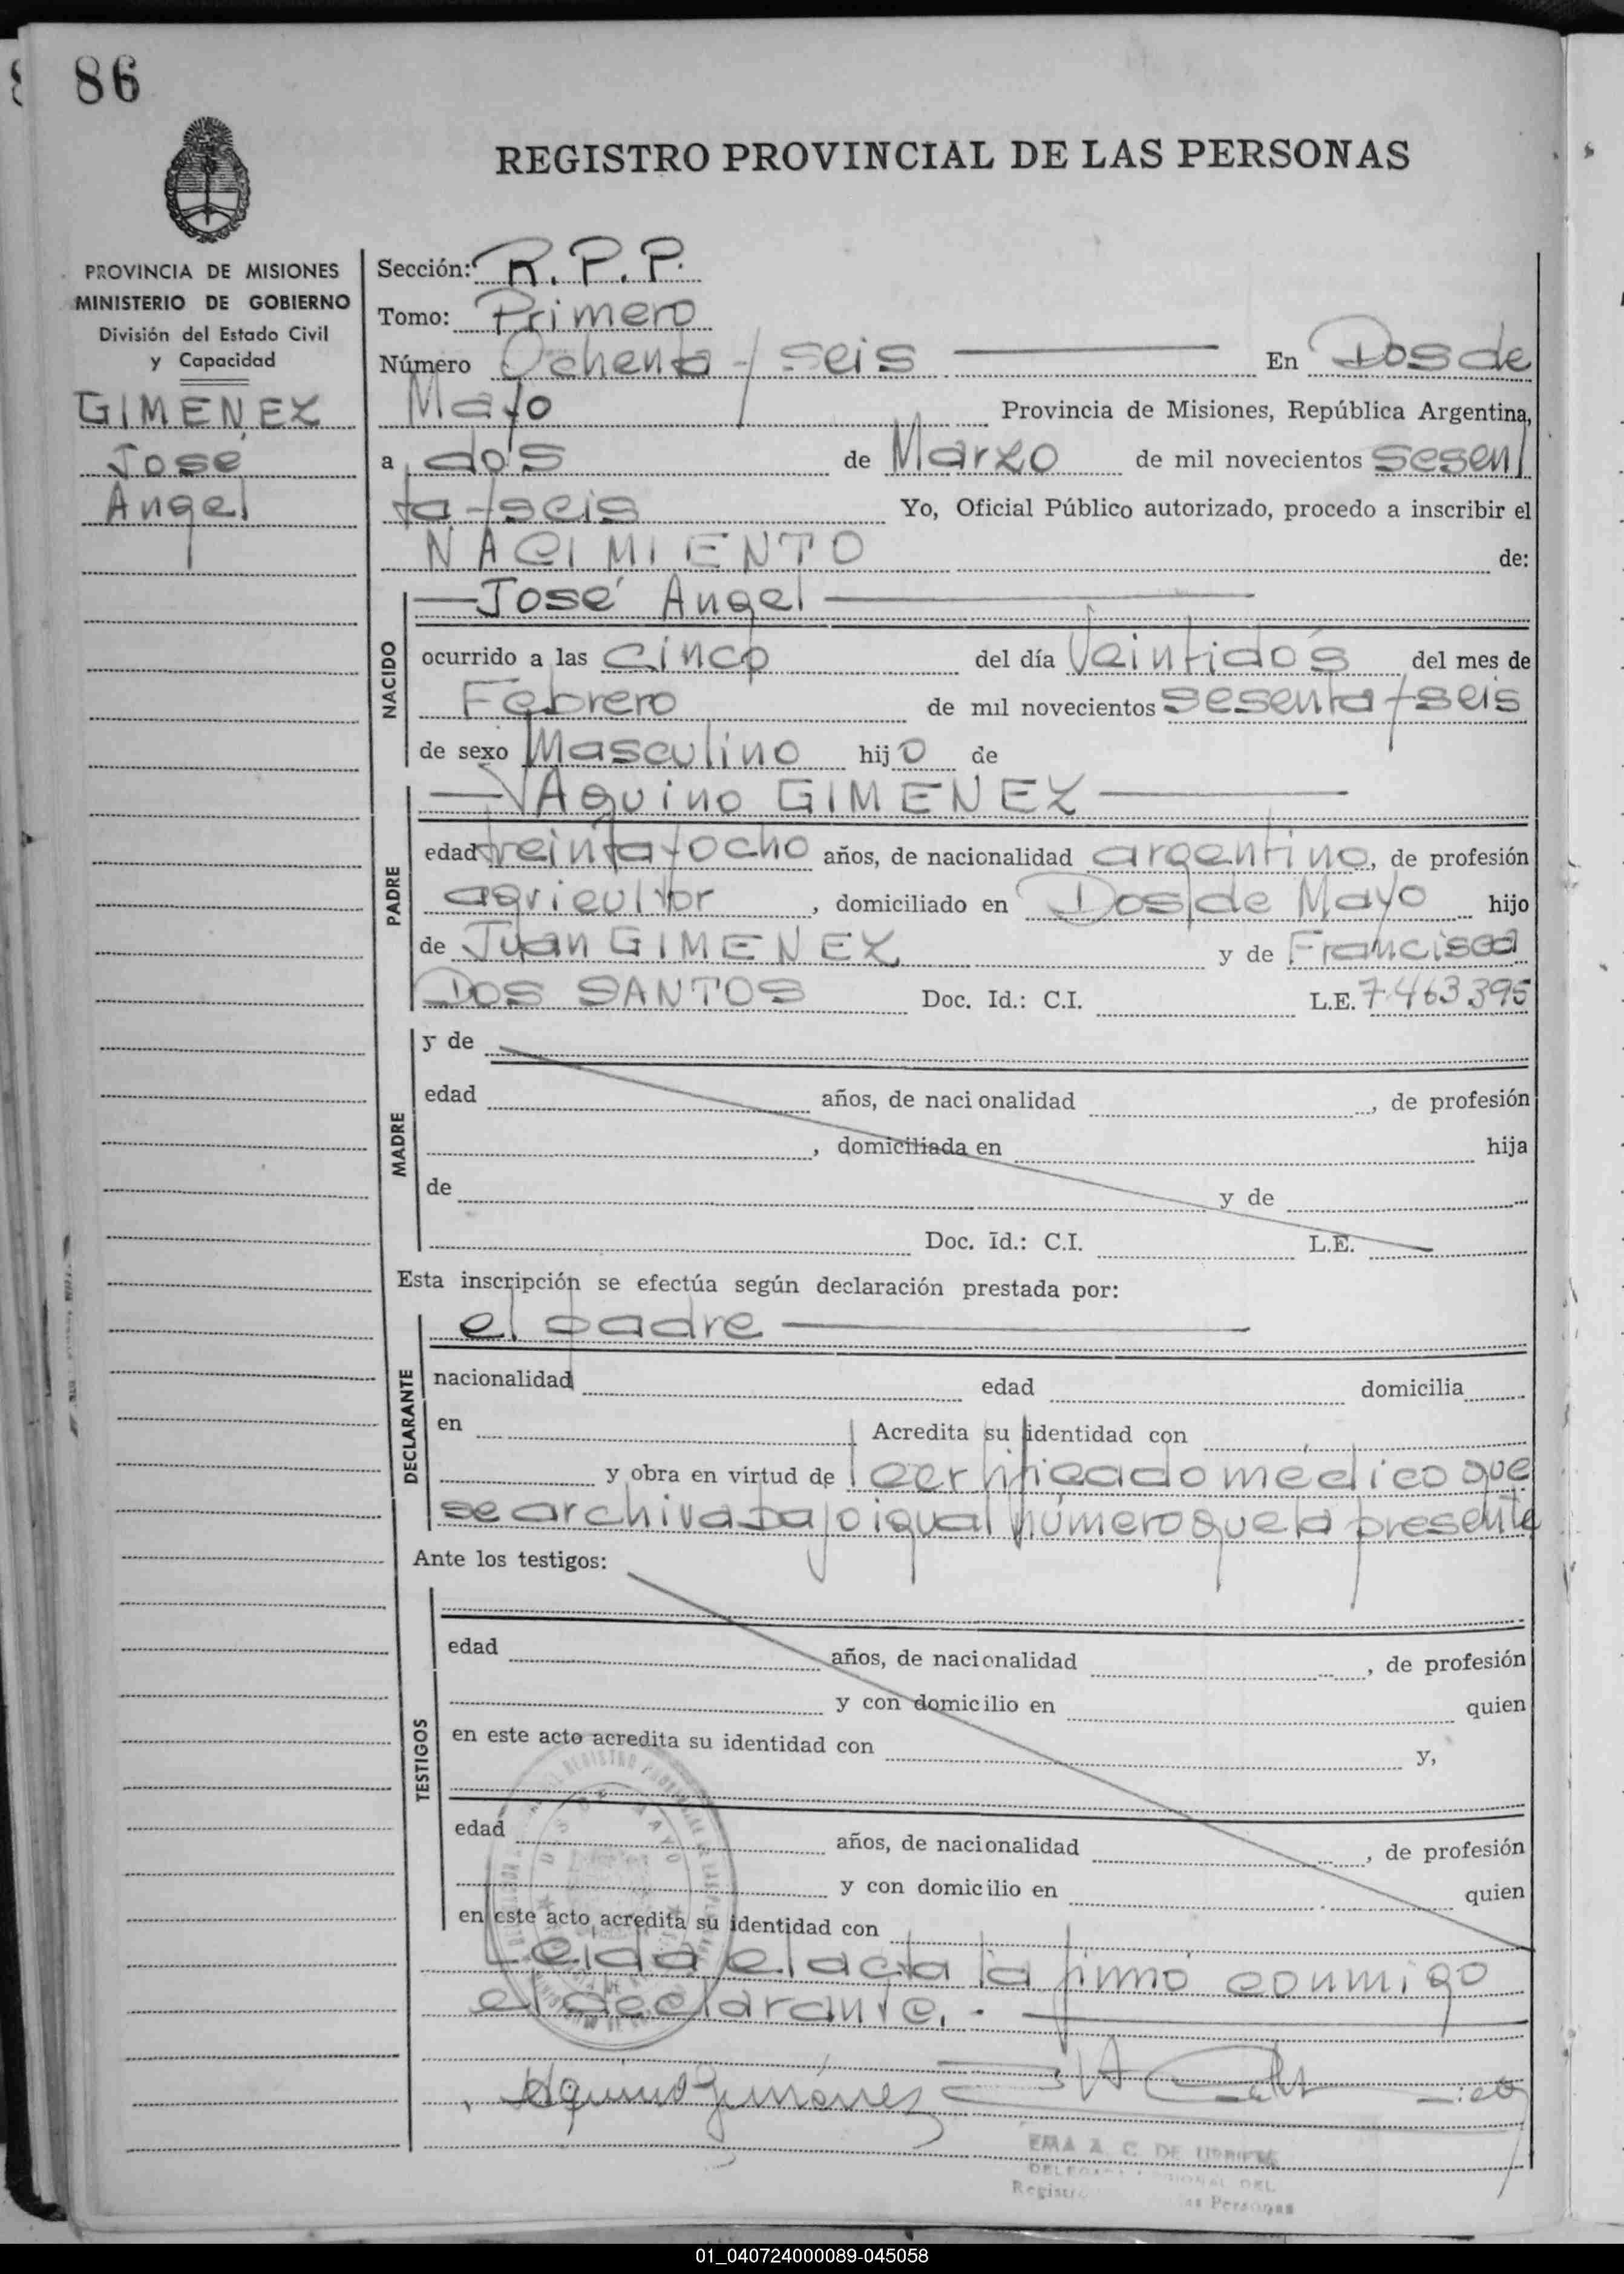 86
REGISTRO PROVINCIAL DE LAS PERSONAS
PROVINCIA DE MISIONES
MINISTERIO DE GOBIERNO
División del Estado Civil
y Capacidad
GIMENEZ
José
Angel
Sección: R.P.P.
Tomo: Primero
Número Ochenta y seis En Dos de
Mayo Provincia de Misiones, República Argentina,
a dos de Marzo de mil novecientos sesen
ta y seis Yo, Oficial Público autorizado, procedo a inscribir el
NACIMIENTO de:
NACIDO
José Angel
ocurrido a las cinco del día Veintidós del mes de
Febrero de mil novecientos sesenta y seis
de sexo Masculino hijo de
PADRE
Aquino GIMENEZ
edad treinta y ocho años, de nacionalidad argentino, de profesión
agricultor, domiciliado en Dos de Mayo hijo
de Juan GIMENEZ y de Francisca
DOS SANTOS Doc. Id.: C.I. L.E. 7.463.395
MADRE
y de
edad años, de nacionalidad , de profesión
, domiciliada en hija
de y de
Doc. Id.: C.I. L.E.
Esta inscripción se efectúa según declaración prestada por:
DECLARANTE
el padre
nacionalidad edad domicilia
en Acredita su identidad con
y obra en virtud de certificado médico que
se archiva bajo igual número que la presente
Ante los testigos:
TESTIGOS
edad años, de nacionalidad , de profesión
y con domicilio en quien
en este acto acredita su identidad con y,
edad años, de nacionalidad , de profesión
y con domicilio en quien
en este acto acredita su identidad con
Leida el acta la firmó conmigo
el declarante.-
Aquino Gimenez
EMA A. C. DE URRIETA
DEL
Registro las Personas
01_040724000089-045058